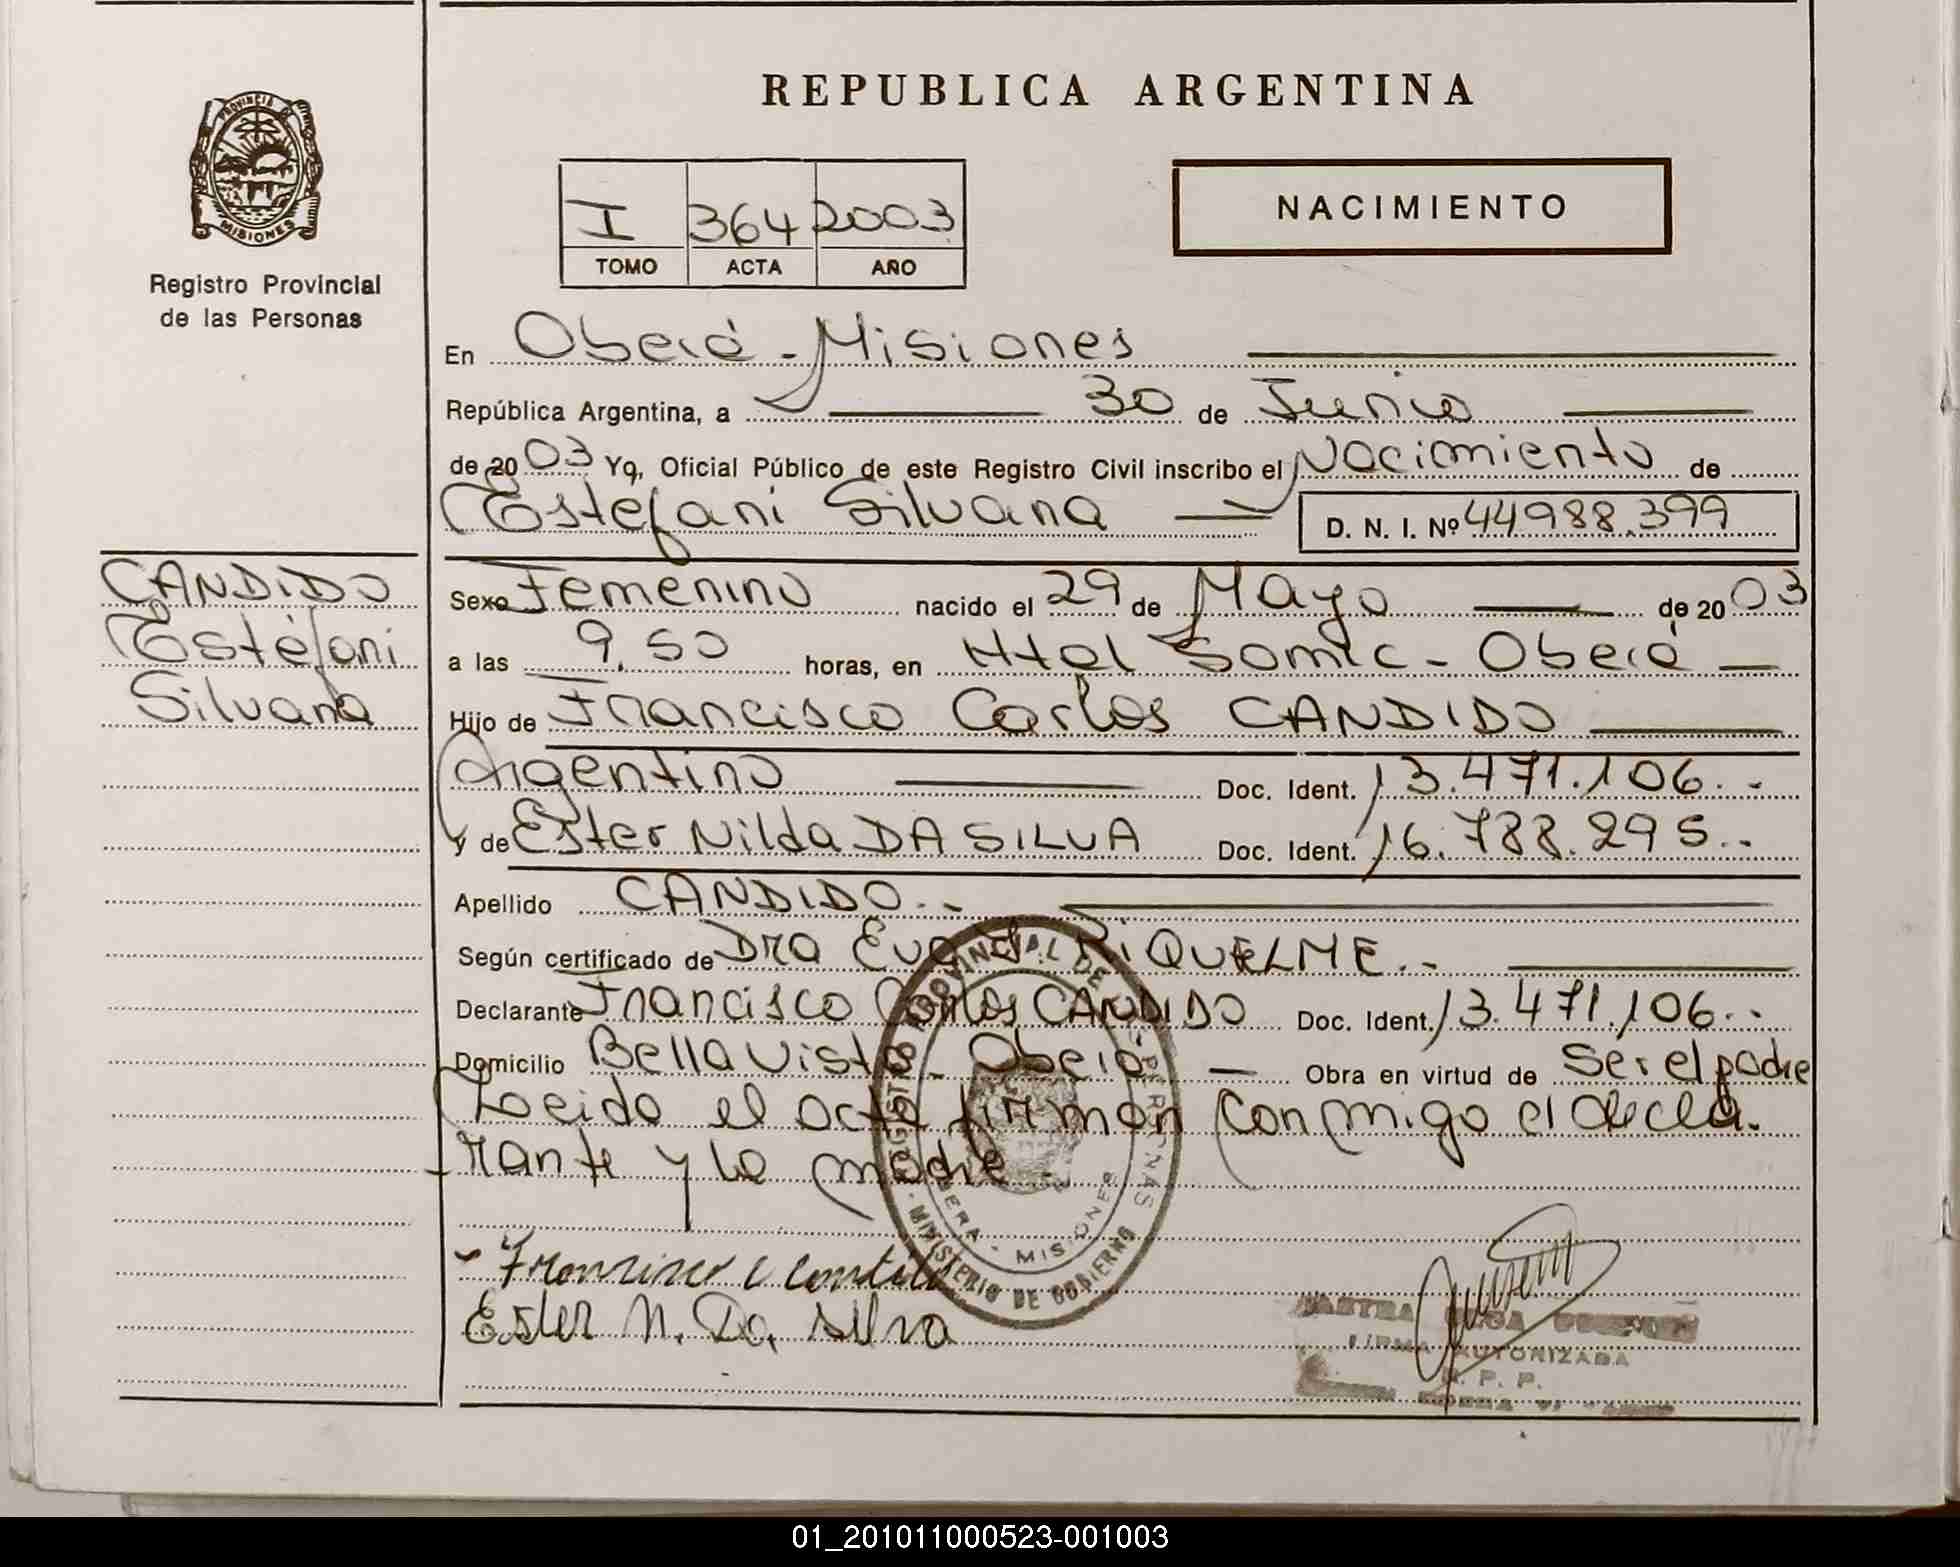 REPUBLICA ARGENTINA
PROVINCIA DE
MISIONES
Registro Provincial
de las Personas
I 364 2003
TOMO ACTA AÑO
NACIMIENTO
En Oberá - Misiones
República Argentina, a 30 de Junio
de 20 03 Yo, Oficial Público de este Registro Civil inscribo el Nacimiento de
Estefani Silvana D. N. I. Nº 44988.399
CANDIDO
Estéfani
Silvana
Sexo Femenino nacido el 29 de Mayo de 20 03
a las 9.50 horas, en Htal Samic - Oberá
Hijo de Francisco Carlos CANDIDO
Argentino Doc. Ident. 13.471.106.-
y de Ester Nilda DA SILVA Doc. Ident. 16.788.295.-
Apellido CANDIDO.-
Según certificado de Dra Eva RIQUELME.-
Declarante Francisco Carlos CANDIDO Doc. Ident. 13.471.106.-
Domicilio Bella Vista - Oberá - Obra en virtud de Ser el padre
Leida el acta firman conmigo el decla-
rante y la madre
REGISTRO PROVINCIAL DE LAS PERSONAS
MISIONES
MINISTERIO DE GOBIERNO
Ester N. Da Silva
FIRMA AUTORIZADA
R. P. P.
01_201011000523-001003